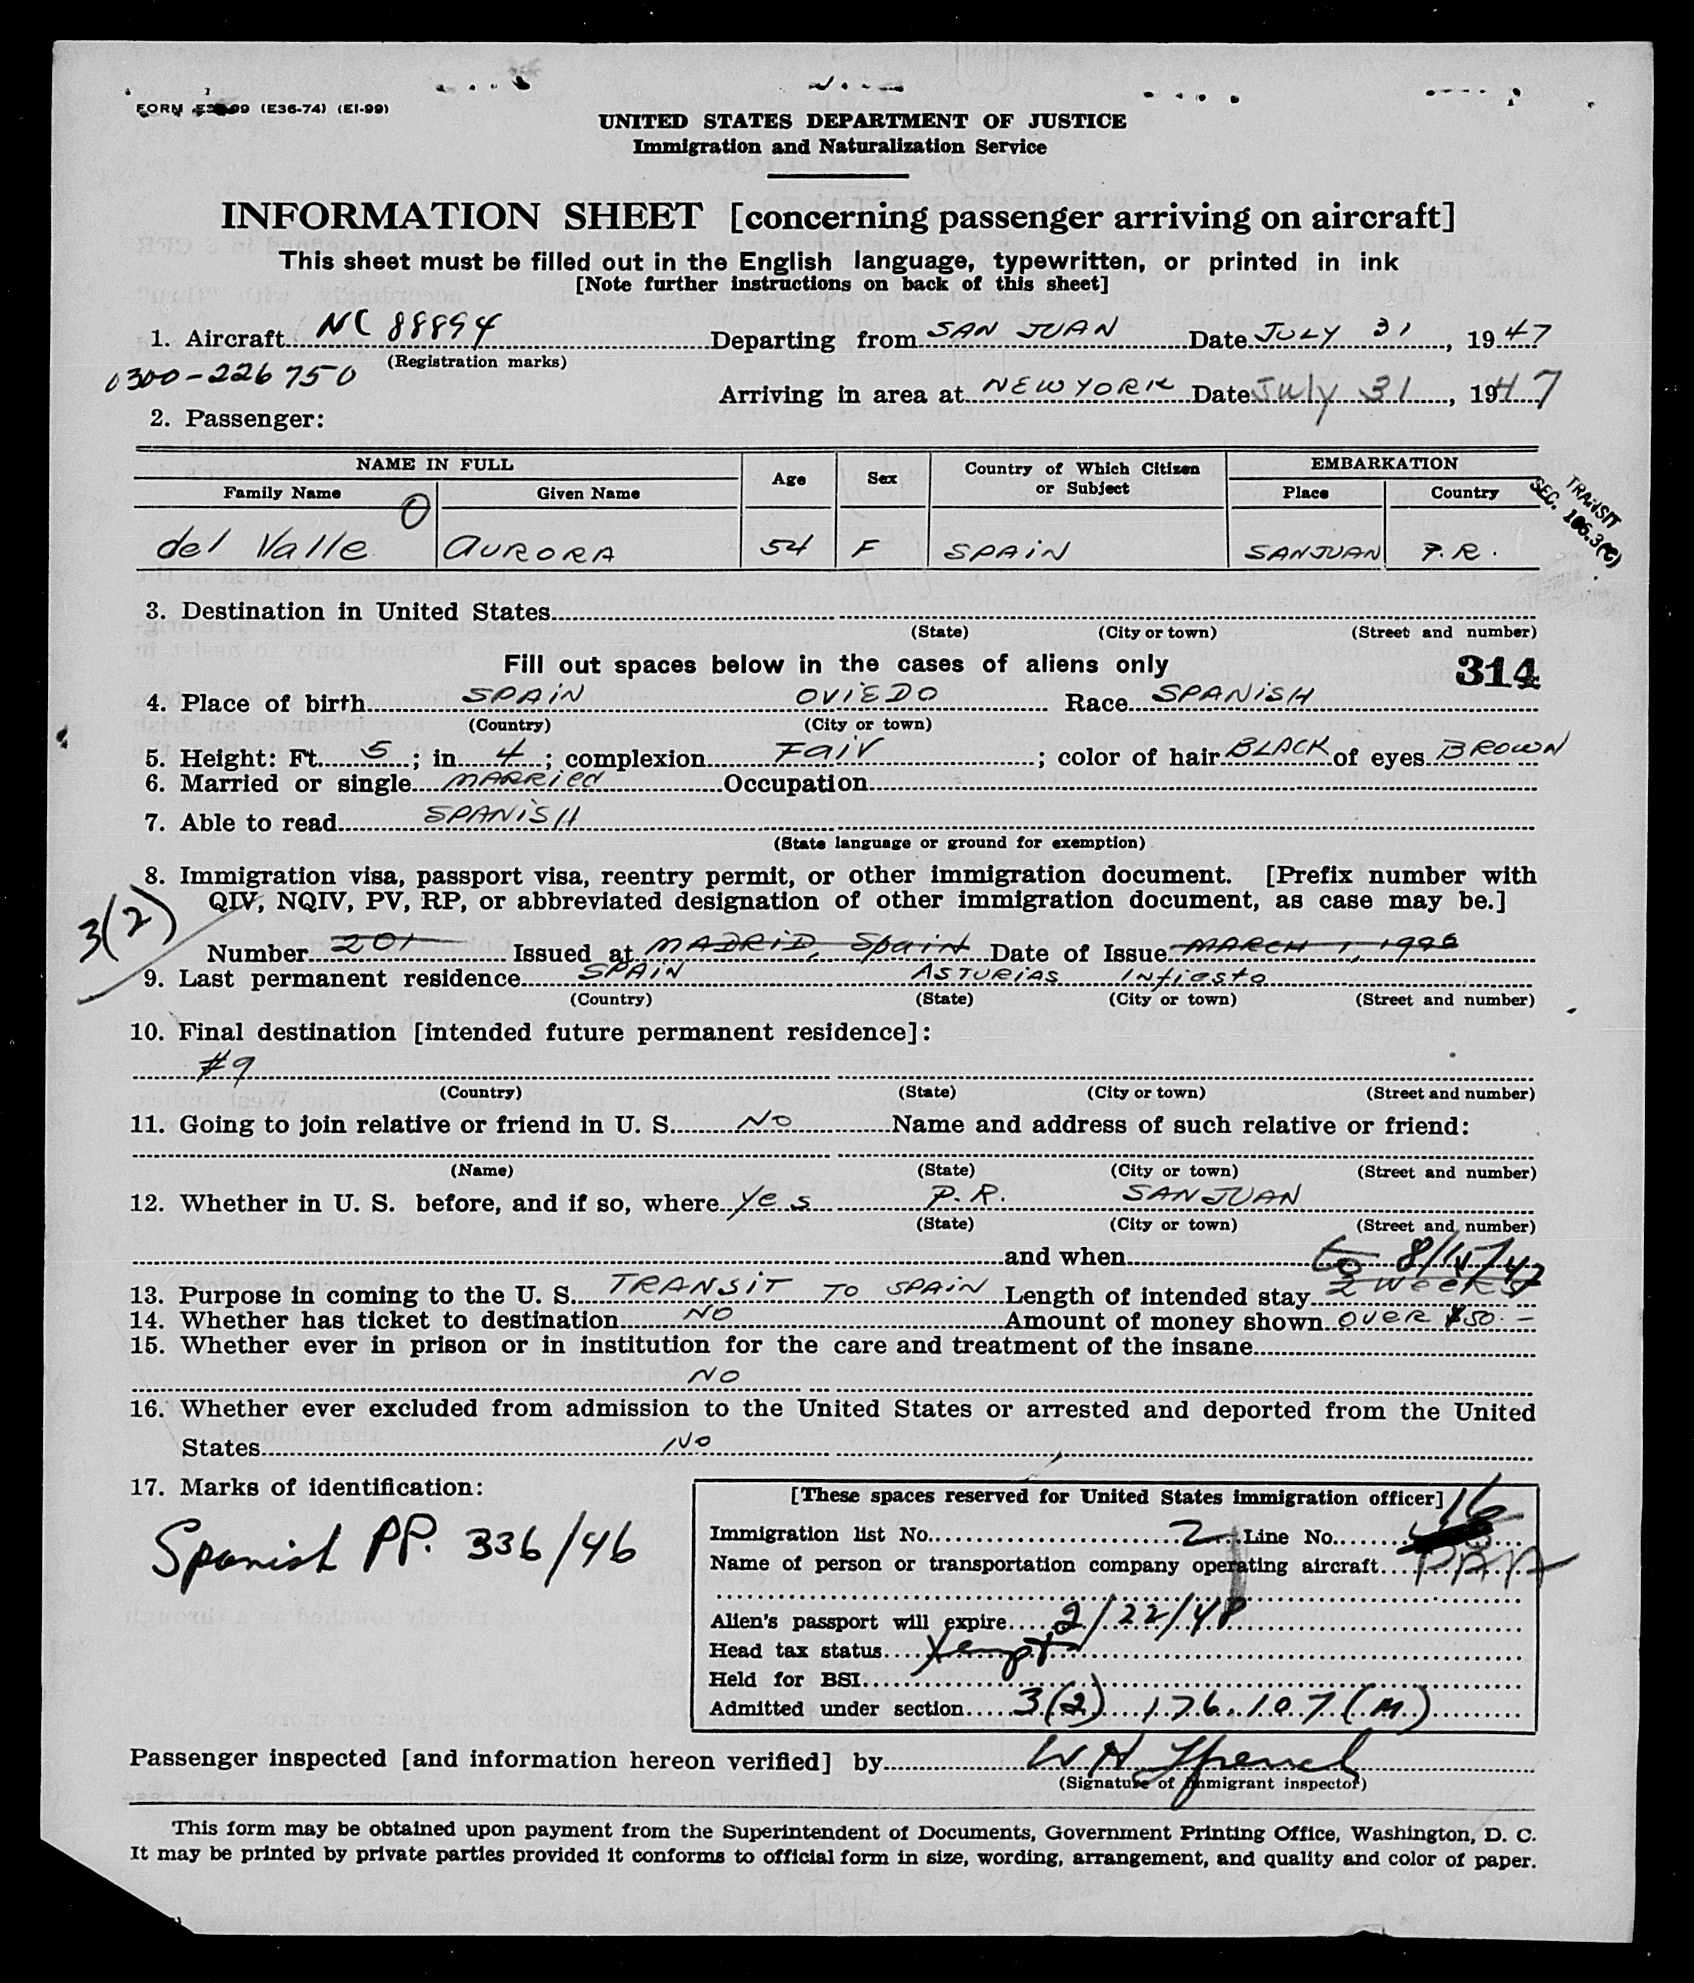 FORM (E36-74) (EI-99)
UNITED STATES DEPARTMENT OF JUSTICE
Immigration and Naturalization Service
INFORMATION SHEET [concerning passenger arriving on aircraft]
This sheet must be filled out in the English language, typewritten, or printed in ink
[Note further instructions on back of this sheet]
1. Aircraft NC 88894 Departing from SAN JUAN Date JULY 31, 1947
(Registration marks)
0300-226750
Arriving in area at NEW YORK Date July 31, 1947
2. Passenger:
NAME IN FULL Age Sex Country of Which Citizen or Subject EMBARKATION
Family Name Given Name Place Country
O
TRANSIT
SEC. 106.3(C)
del Valle AURORA 54 F SPAIN SAN JUAN P.R.
3. Destination in United States
(State) (City or town) (Street and number)
Fill out spaces below in the cases of aliens only 314
4. Place of birth SPAIN OVIEDO Race SPANISH
(Country) (City or town)
5. Height: Ft. 5; in 4; complexion Fair; color of hair BLACK of eyes BROWN
6. Married or single MARRIED Occupation
7. Able to read SPANISH
(State language or ground for exemption)
8. Immigration visa, passport visa, reentry permit, or other immigration document. [Prefix number with
QIV, NQIV, PV, RP, or abbreviated designation of other immigration document, as case may be.]
3(2)
Number 201 Issued at MADRID, Spain Date of Issue MARCH 1, 1946
9. Last permanent residence SPAIN ASTURIAS Infiesto
(Country) (State) (City or town) (Street and number)
10. Final destination [intended future permanent residence]:
#9
(Country) (State) (City or town) (Street and number)
11. Going to join relative or friend in U. S. NO Name and address of such relative or friend:
(Name) (State) (City or town) (Street and number)
12. Whether in U. S. before, and if so, where Yes P.R. SAN JUAN
(State) (City or town) (Street and number)
and when
to 8/15/47
13. Purpose in coming to the U. S. TRANSIT TO SPAIN Length of intended stay 2 WEEKS
14. Whether has ticket to destination NO Amount of money shown OVER $50.-
15. Whether ever in prison or in institution for the care and treatment of the insane
NO
16. Whether ever excluded from admission to the United States or arrested and deported from the United
States NO
17. Marks of identification:
Spanish PP. 336/46
[These spaces reserved for United States immigration officer]
Immigration list No. 2 Line No. 16
Name of person or transportation company operating aircraft PAA
Alien's passport will expire 2/22/48
Head tax status Xempt
Held for BSI
Admitted under section 3(2) 176.107(M)
Passenger inspected [and information hereon verified] by W H
(Signature of immigrant inspector)
This form may be obtained upon payment from the Superintendent of Documents, Government Printing Office, Washington, D. C.
It may be printed by private parties provided it conforms to official form in size, wording, arrangement, and quality and color of paper.